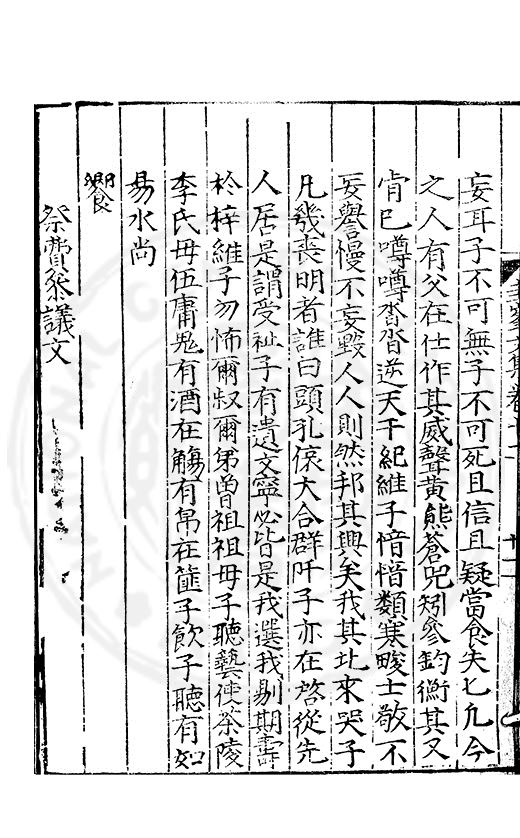 妄耳子不可無子不可死且信且疑當食失匕凡今
之人有父在仕作其威聲黃熊蒼兕矧參鈞衡其又
肯已噂噂沓沓逆天干紀維子愔愔類寒畯士敬不
妄譽慢不妄毀人人則然邦其興矣我其北來哭子
凡幾喪明者誰曰頭孔偯大合群阡子亦在啓從先
人居是謂受祉子有遺文寧必皆是我選我剔期壽
於梓維子勿怖爾叔爾弟曾祖祖母子聽藝使茶陵
李氏毋伍庸鬼有酒在觴有帛在篚子飲子聽有如
易水尚
饗
祭費參議文